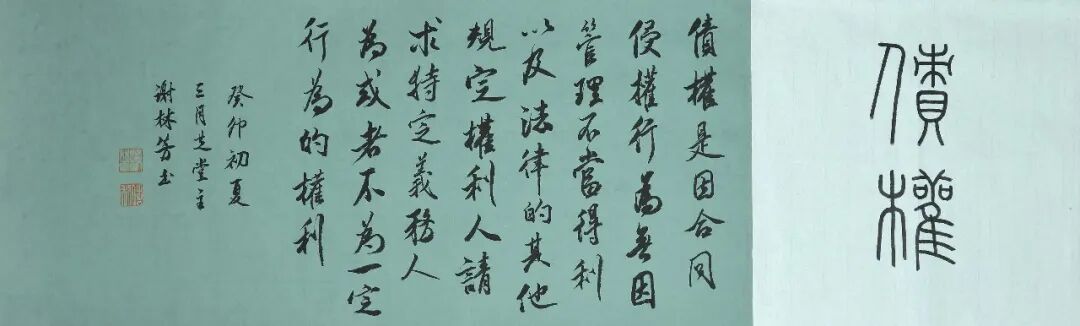 債權
債權是因合同
侵權行為無因
管理不當得利
以及法律的其他
規定權利人請
求特定義務人
為或者不為一定
行為的權利
癸卯初夏
三月芝堂主
謝林芳書